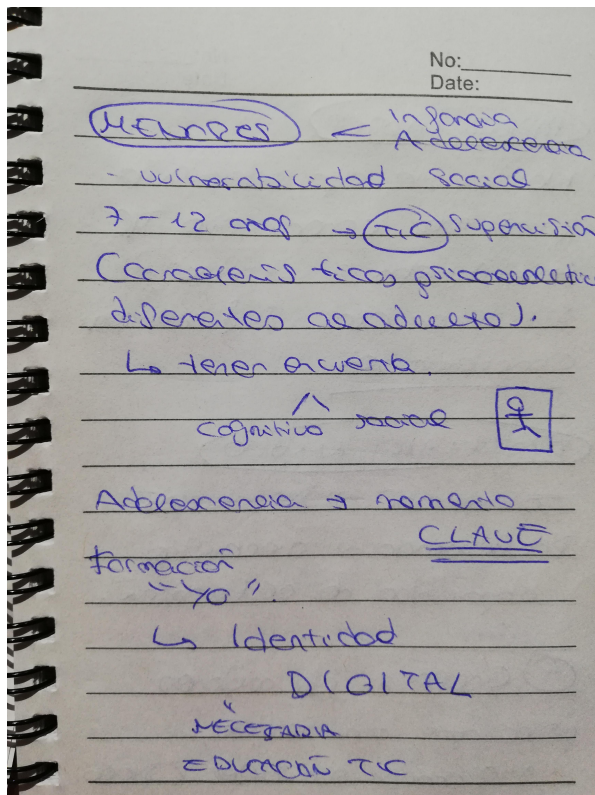 No:
Date:
MENORES < Infancia
Adolescencia
- vulnerabilidad social
7 - 12 años → TIC Supervisión
(Características
diferentes al adulto).
↳ tener en cuenta.
cognitivo social
Adolescencia → momento
CLAVE
Formación
"Yo".
↳ Identidad
DIGITAL
"
NECESARIA
EDUCACIÓN TIC